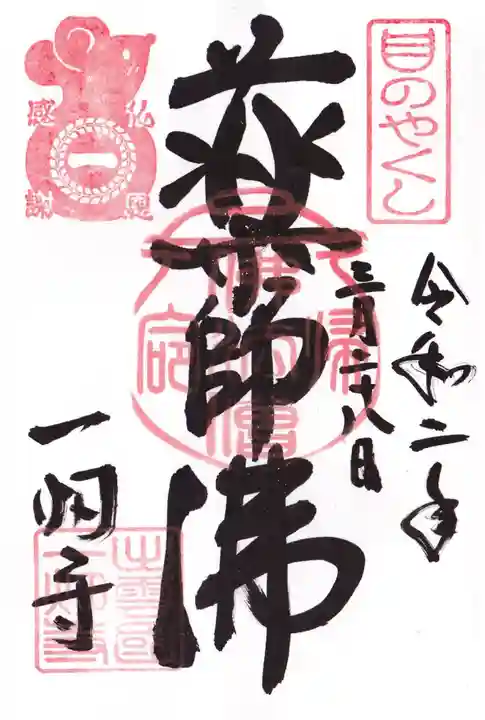 目のやくし
令和二年
三月二十八日
薬師佛
仏恩
感謝
一
一畑寺
出雲国
一畑寺